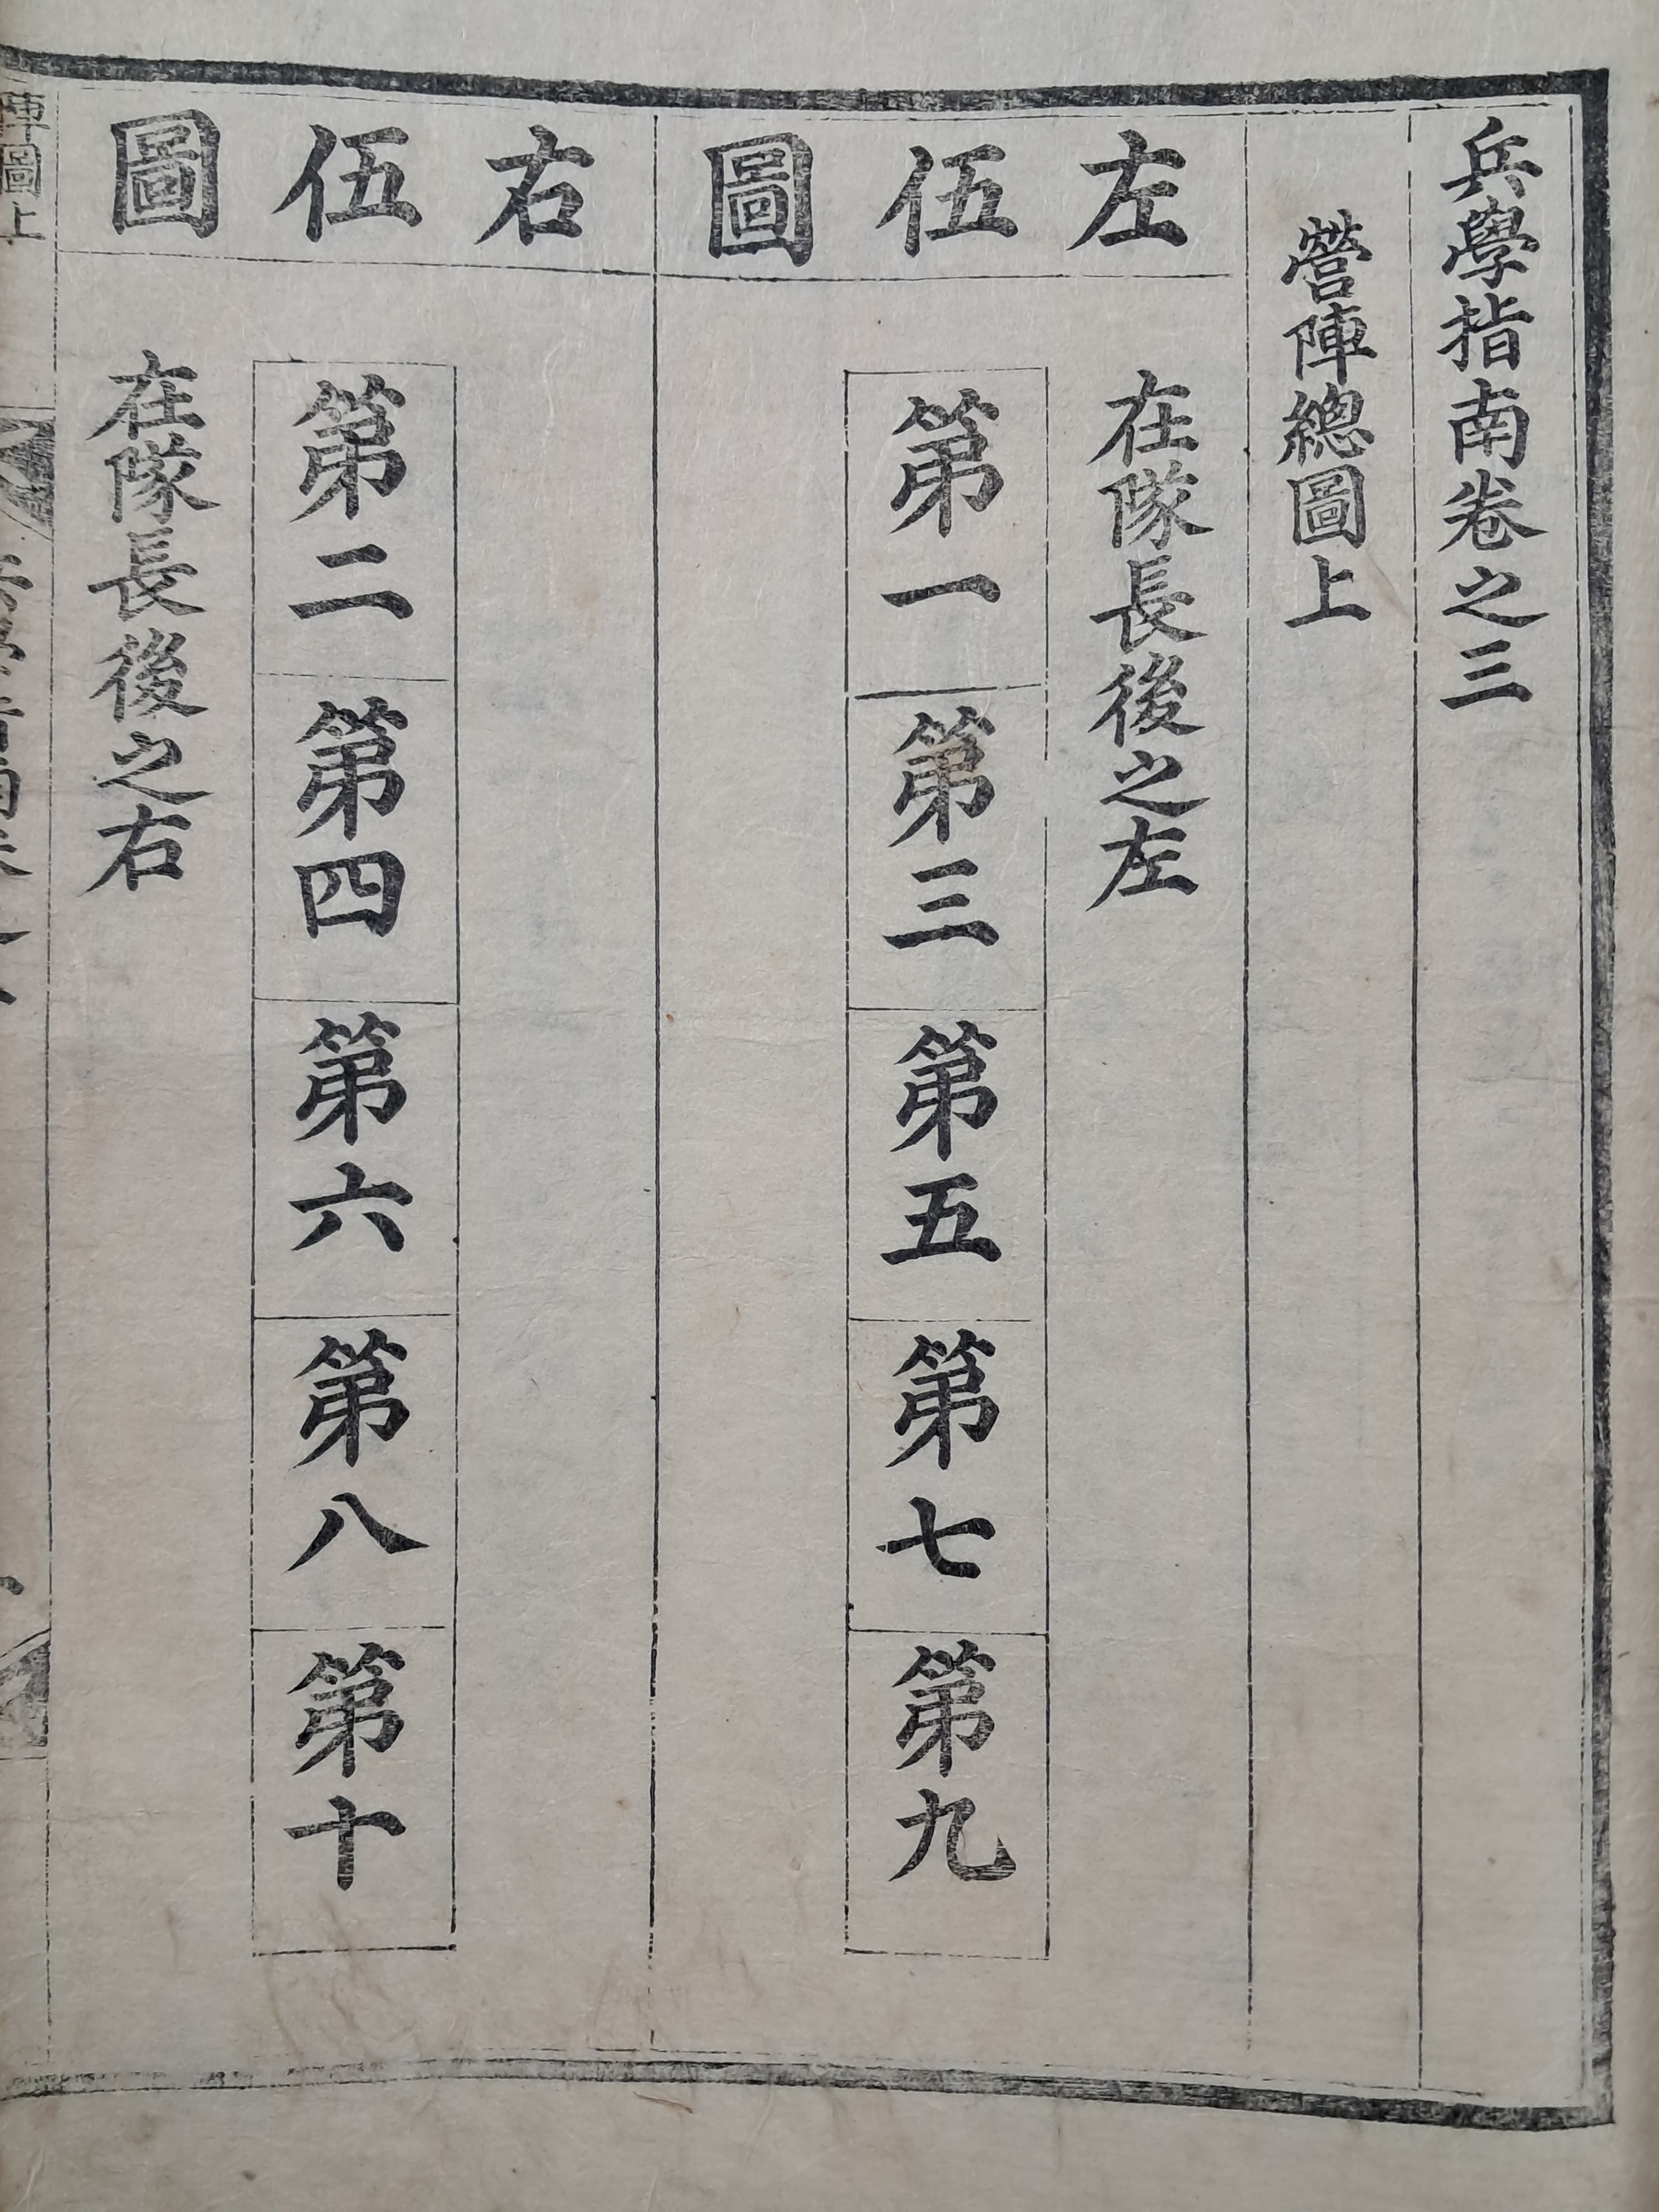 兵學指南卷之三
營陣總圖上
左伍圖
在隊長後之左
第一
第三
第五
第七
第九
右伍圖
第二
第四
第六
第八
第十
在隊長後之右
陣圖上